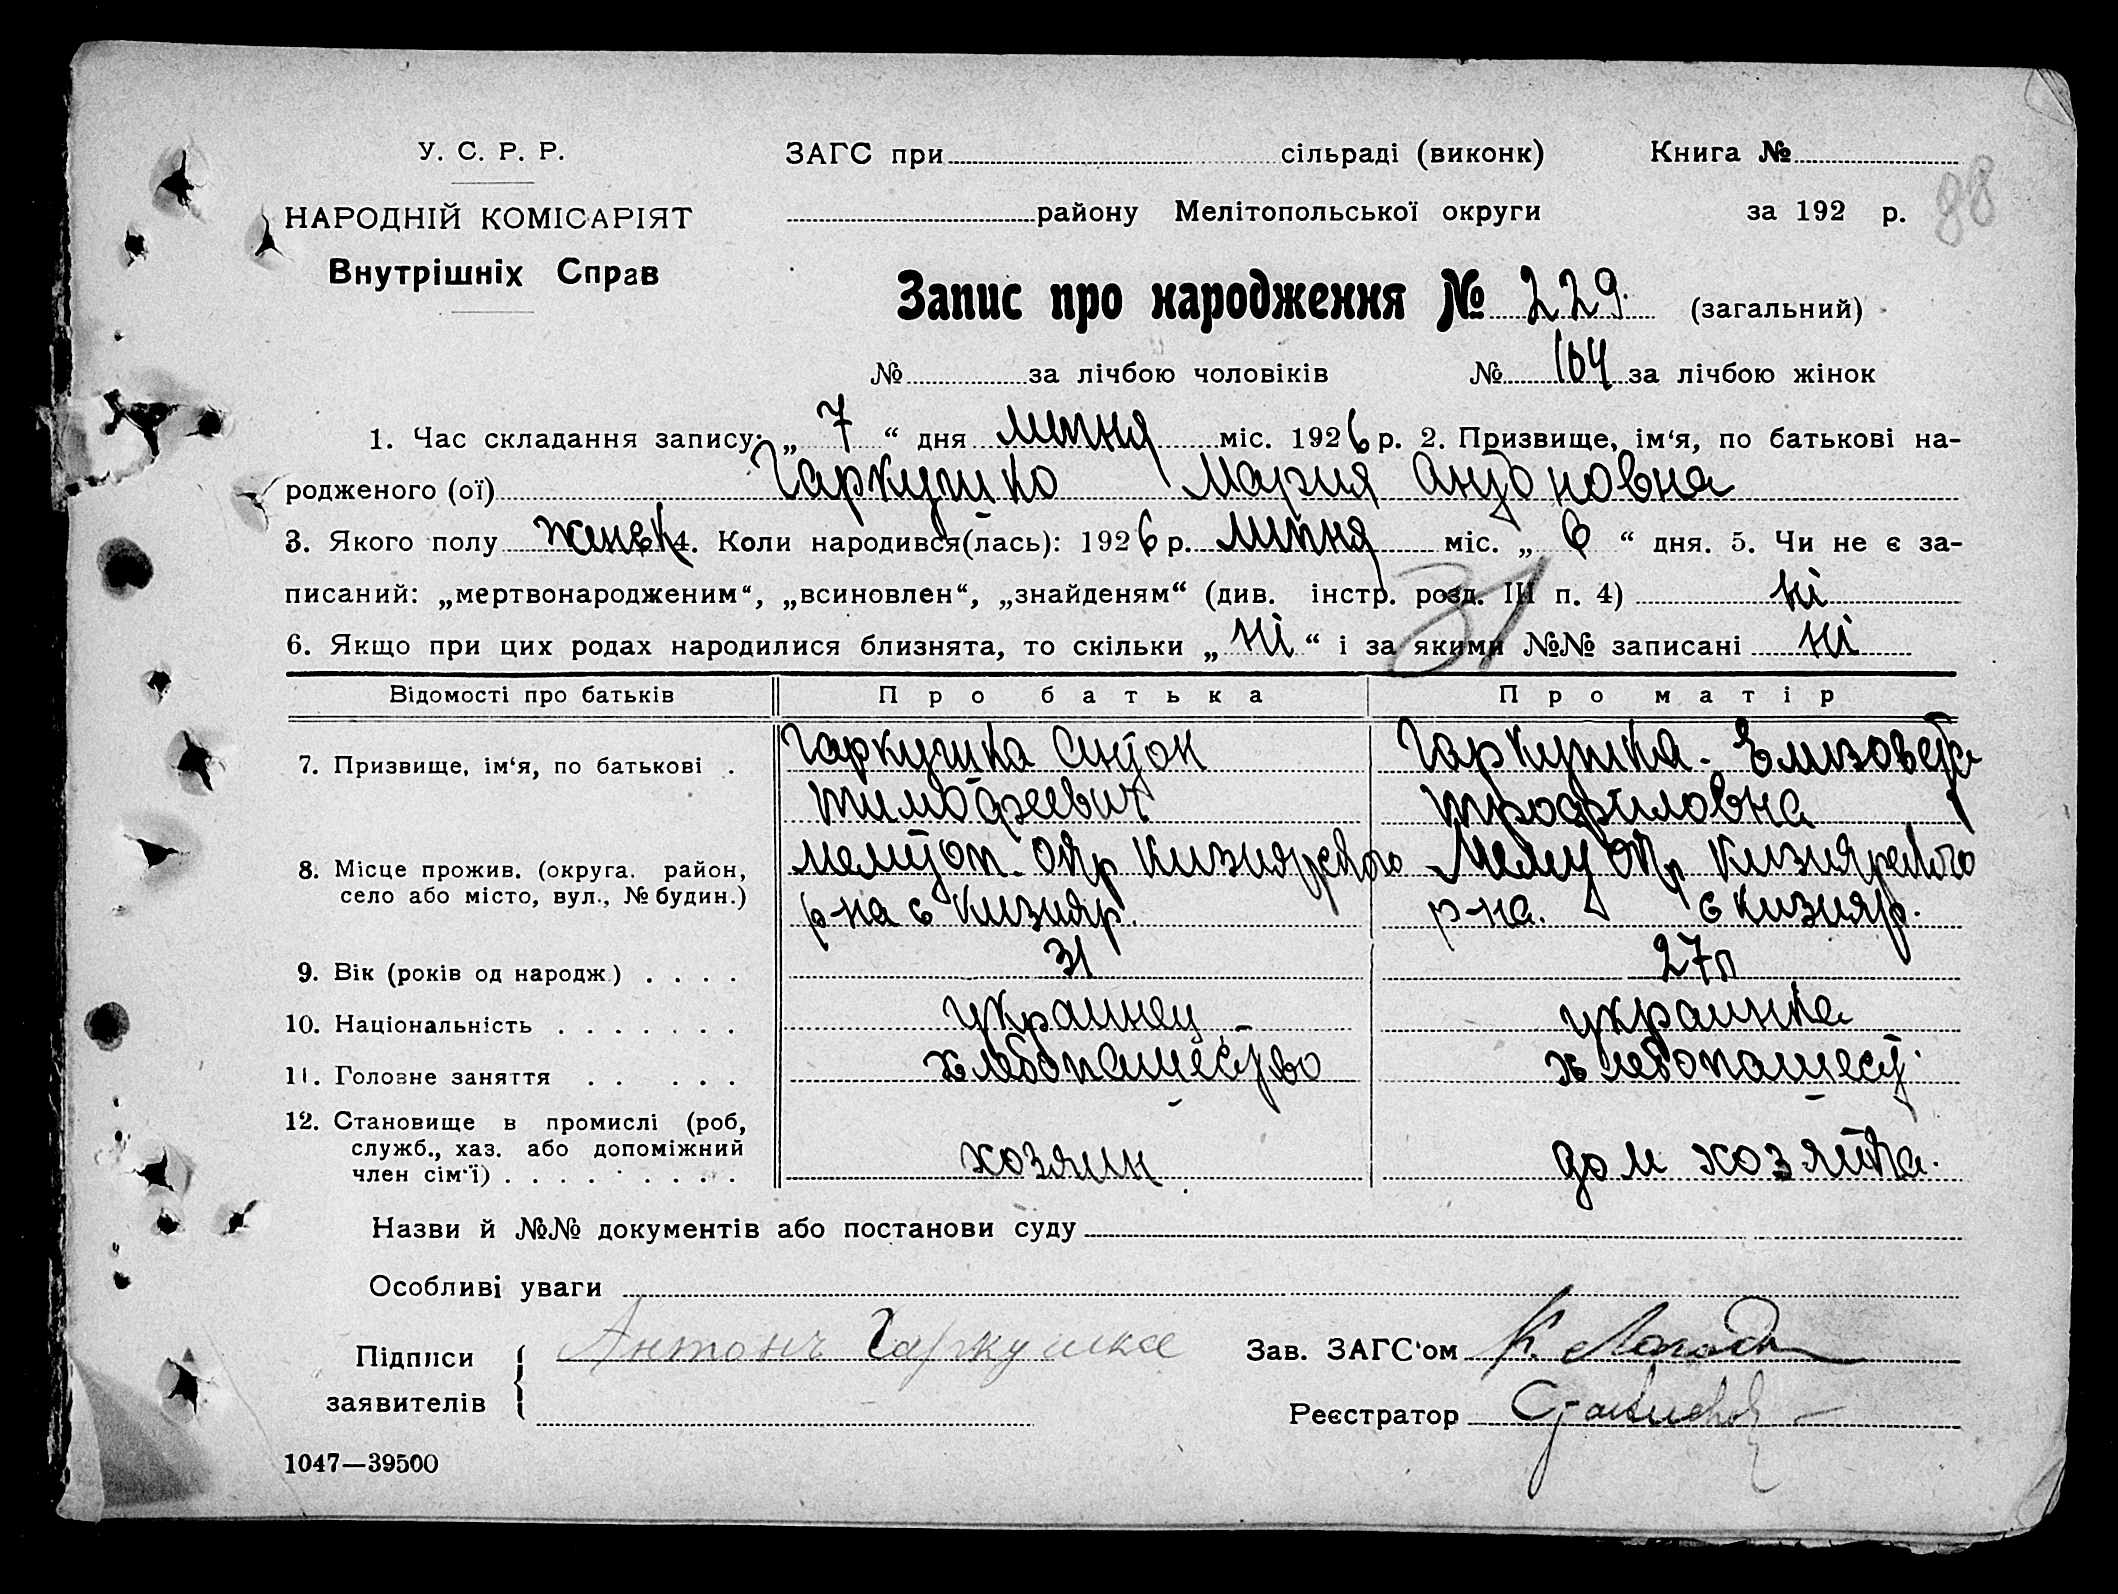 У. С. Р. Р. ЗАГС при сільраді (виконк) Книга №
88
НАРОДНІЙ КОМІСАРІЯТ району Мелітопольської округи за 192 р.
Внутрішніх Справ
Запис про народження № 229. (загальний)
№ за лічбою чоловіків № 104 за лічбою жінок
1. Час складання запису: „ 7 “ дня липня міс. 1926 р. 2. Призвище, ім‘я, по батькові на-
родженого (ої) Гаркушко Мария Антоновна
3. Якого полу женск 4. Коли народився(лась): 1926 р. липня міс. „ 6 “ дня. 5. Чи не є за-
писаний: „мертвонародженим“, „всиновлен“, „знайденям“ (див. інстр. розд. III п. 4) ні
31
6. Якщо при цих родах народилися близнята, то скільки „ ні “ і за якими №№ записані ні
Відомості про батьків Про батька Про матір
7. Призвище, ім‘я, по батькові . Гаркушка Антон Гаркушка. Елизовета
Тимофеевич Трофиловна
8. Місце прожив. (округа. район, Мелитоп. окр Кизиярского Мелит окр Кизиярского
село або місто, вул., № будин.) р-на с Кизияр. р-на. с Кизияр.
9. Вік (років од народж.) . . . . 31 27л
10. Національність . . . . . . . украинец украинка
11. Головне заняття . . . . . хлебопашество хлебопашест.
12. Становище в промислі (роб,
служб., хаз. або допоміжний
член сім‘ї) . . . . . . . . хозяин дом хозяйка.
Назви й №№ документів або постанови суду
Особливі уваги
Підписи Антонъ Гаркушка Зав. ЗАГС‘ом
заявителів Реєстратор
1047—39500